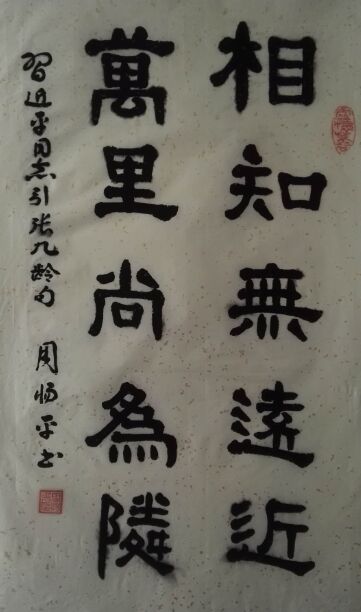 相知無遠近
萬里尚為隣
習近平同志引张九龄句 周平书